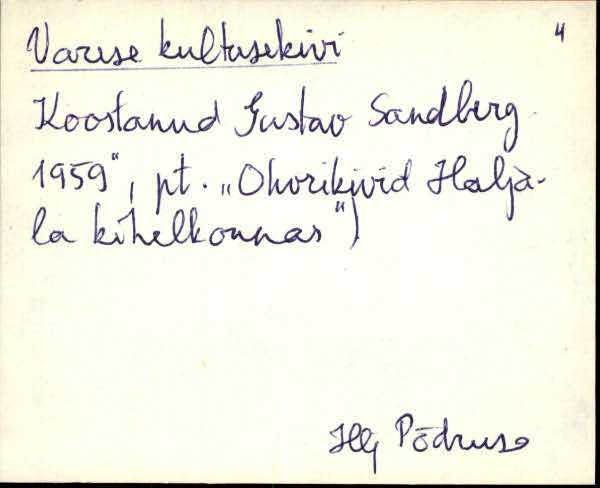 Varese kultusekivi 4
Koostanud Gustav Sandberg
1959", pt. „Ohvrikivid Haljä-
la kihelkonnas")
Põdruse